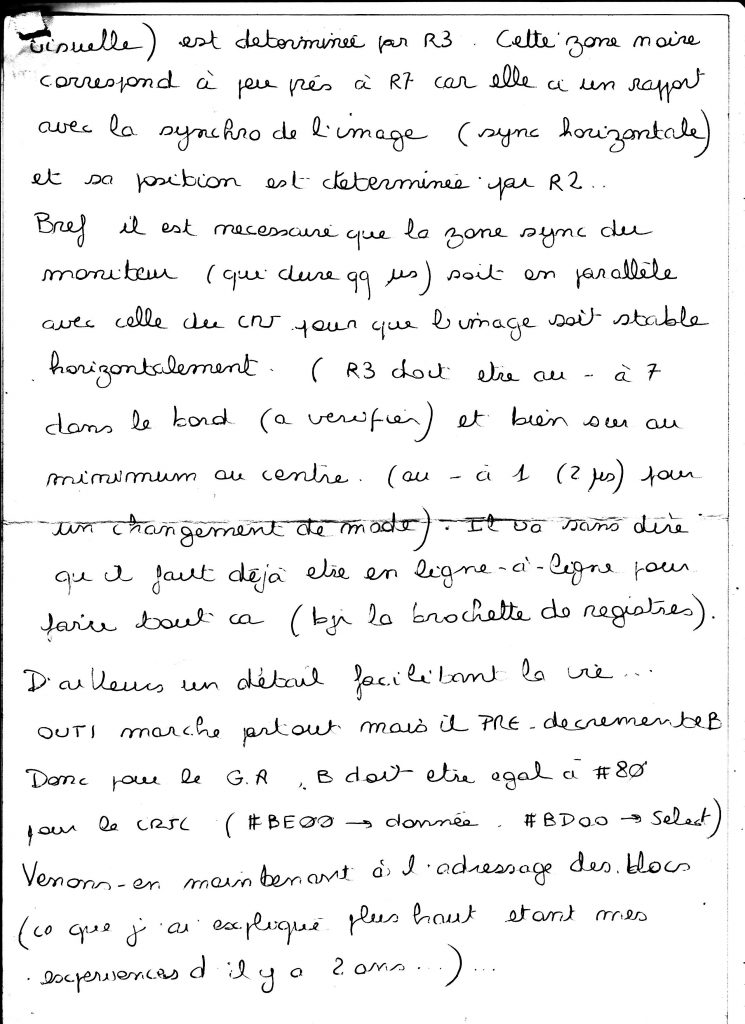 visuelle) est determinée par R3. Cette zone noire
correspond à peu prés à R7 car elle a un rapport
avec la synchro de l'image (sync horizontale)
et sa position est determinée par R2..
Bref il est necessaire que la zone sync du
moniteur (qui dure qq µs) soit en parallèle
avec celle du crtc pour que l'image soit stable
horizontalement. (R3 doit etre au - à 7
dans le bord (a verifier) et bien sur au
minimum au centre. (au - à 1 (2 µs) pour
un changement de mode). Il va sans dire
qu il faut déjà etre en ligne-à-ligne pour
faire tout ca (bji la brochette de registres).
D'ailleurs un détail facilitant la vie...
OUTI marche partout mais il PRE-decremente B
Donc pour le G.A, B doit etre egal à #80
pour le CRTC (#BE00 → donnée. #BD00 → Select)
Venons-en maintenant à l'adressage des blocs
(ce que j'ai expliqué plus haut etant mes
experiences d'il y a 2 ans...)...